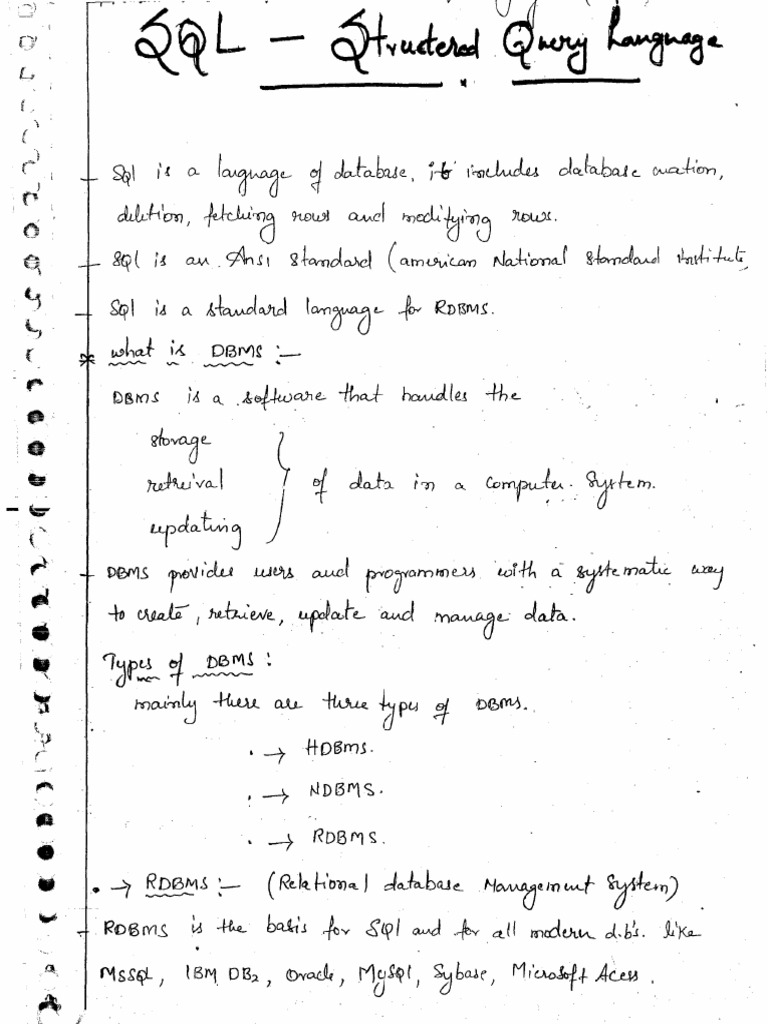 SQL - Structered Query Language
Sql is a language of database, it includes database creation,
deletion, fetching rows and modifying rows.
SQl is an Ansi Standard (american National Standard institute,
Sql is a standard language for RDBMS.
* what is DBMS :-
DBMS is a software that handles the
storage
retreival } of data in a Computer System.
updating
DBMS provides users and programmers with a systematic way
to create, retrieve, update and manage data.
Types of DBMS :
mainly there are three types of DBMS.
. → HDBMS.
. → NDBMS.
. → RDBMS.
. → RDBMS :- (Relational database Management System)
RDBMS is the basis for SQl and for all modern d.b's. like
MSSQL, IBM DB2, Oracle, MySql, Sybase, Microsoft Acess.